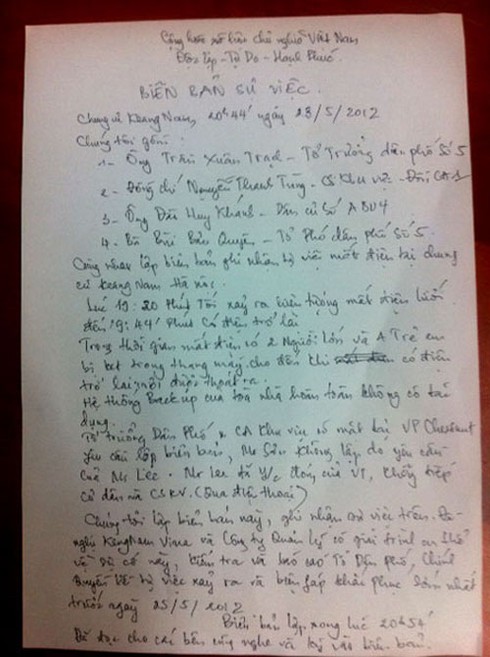 Cộng hòa xã hội chủ nghĩa Việt Nam
Độc lập - Tự Do - Hạnh Phúc.
BIÊN BẢN SỰ VIỆC.
Chung cư Keang Nam, 20h44' ngày 23/5/2012
Chúng tôi gồm:
1 - Ông Trần Xuân Trạch - Tổ Trưởng dân phố Số 5
2 - Đồng chí Nguyễn Thanh Tùng - CS Khu vực - Đồn CA
3 - Ông Đài Huy Khánh - Dân cư số A
4 - Bà Bùi Bảo Quyên - Tổ Phó dân phố số 5.
Cùng nhau lập biên bản ghi nhận sự việc mất điện tại chung
cư Keang Nam Hà Nội.
Lúc 19:20 phút Tối xảy ra hiện tượng mất điện lưới
đến 19:44' phút Có điện trở lại
Trong thời gian mất điện có 2 Người lớn và 1 Trẻ em
bị kẹt trong thang máy cho đến khi có điện
trở lại mới được thoát ra.
Hệ thống Back up của tòa nhà hoàn toàn không có tác
dụng.
Tổ trưởng Dân Phố & CA Khu vực có mặt tại VP Chesnut
yêu cầu lập biên bản, Mr Sơn không lập do yêu cầu
của Mr Lee. Mr Lee đã y/c đóng cửa VP, không tiếp
cư dân và CSKV. (Qua điện thoại)
Chúng tôi lập biên bản này, ghi nhận sự việc trên. Đề
nghị KengNam Vina và Công ty Quản lý có giải trình cụ thể
về sự cố này, kiểm tra và báo cáo Tổ Dân Phố, Chính
quyền về sự việc xảy ra và biện pháp khắc phục sớm nhất
trước ngày 25/5/2012
Biên bản lập xong lúc 20h54'
Đã đọc cho các bên cùng nghe và ký vào biên bản.